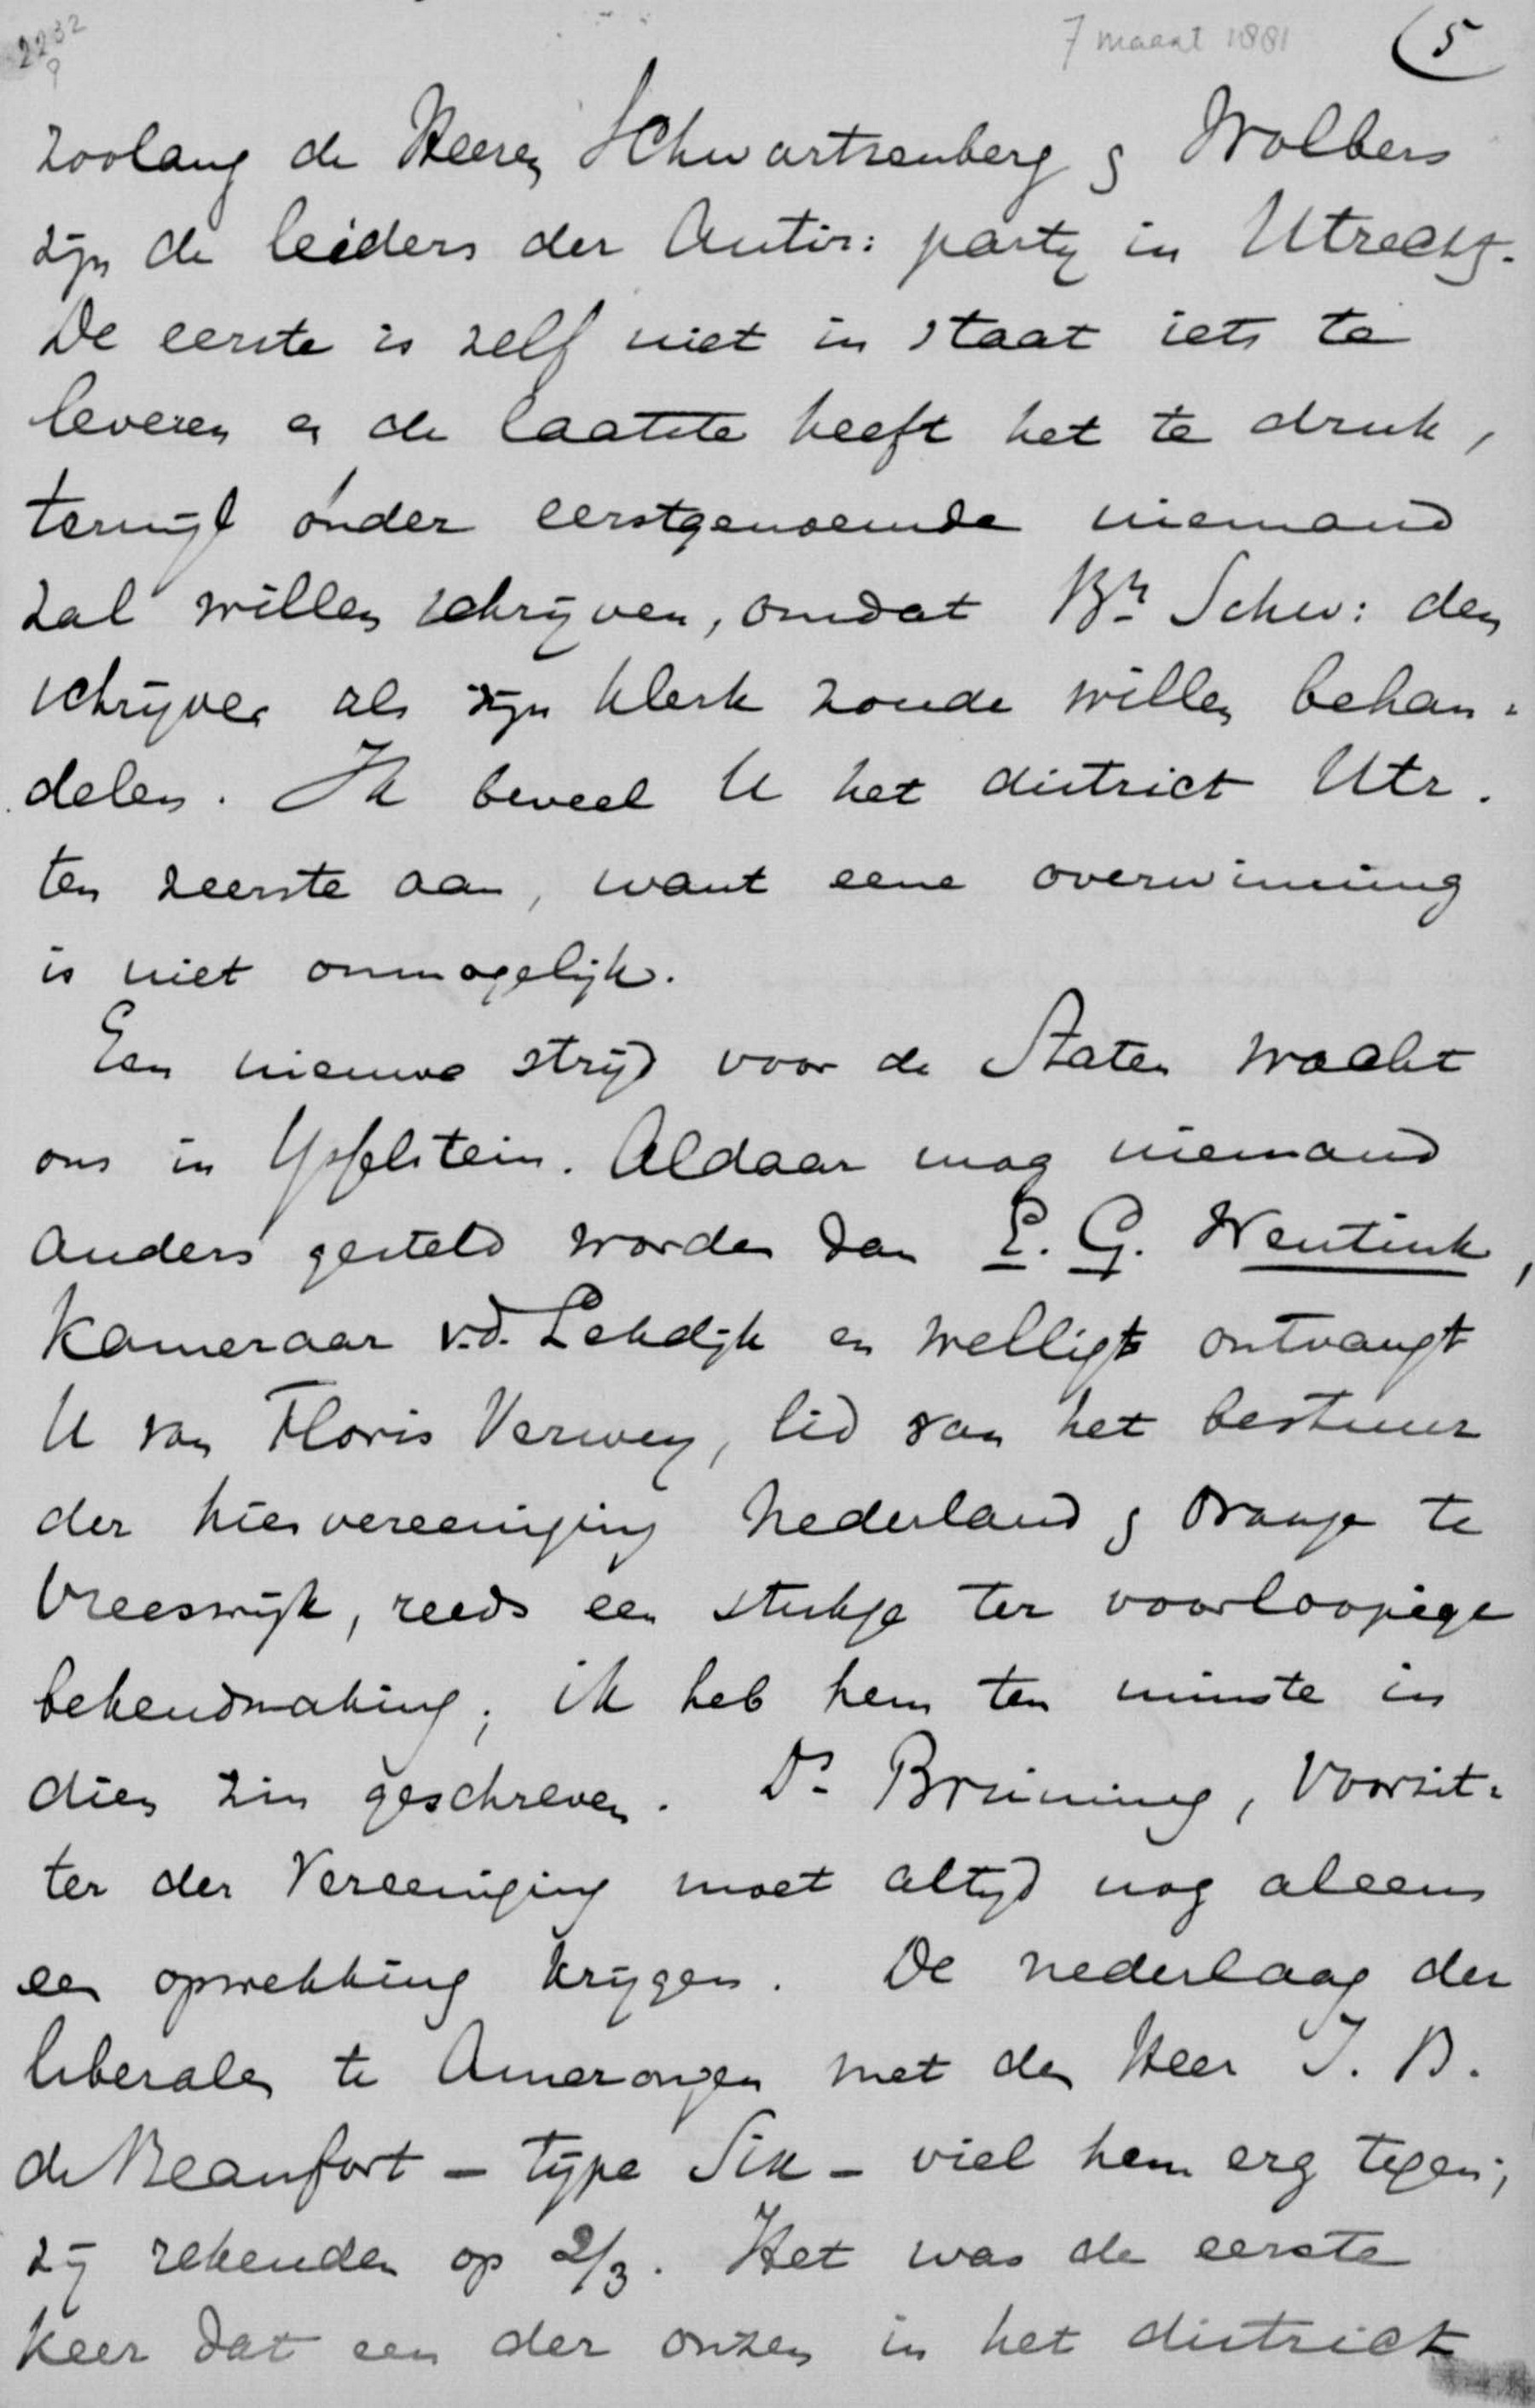 2232
9
7 maart 1881
5
zoolang de Heeren Schwartsenberg & Wolbers
zijn de leiders der Antir: party in Utrecht.
De eerste is zelf niet in staat iets te
leveren en de laatste heeft het te druk,
terwijl onder eerstgenoemde niemand
zal willen schrijven, omdat Bn Schw: den
schrijver als zijn klerk zoude willen behan=
delen. Ik beveel U het district Utr.
ten zeerste aan, want eene overwinning
is niet onmogelijk.
Een nieuwe strijd voor de Staten wacht
ons in Ysselstein. Aldaar mag niemand
anders gesteld worden dan E. G. Wentink,
Kameraar v.d. Lekdijk en welligt ontvangt
U van Floris Verwey, lid van het bestuur
der kiesvereeniging Nederland & Oranje te
Vreeswijk, reeds een stukje ter voorloopige
bekendmaking; ik heb hem ten minste in
dien zin geschreven. Ds Bruining, Voorzit=
ter der Vereeniging moet altijd nog aleens
een opwekking krijgen. De nederlaag der
liberalen te Amerongen met den Heer J. B.
de Beaufort – type Six – viel hem erg tegen;
zij rekenden op 2/3. Het was de eerste
keer dat een der onzen in het district